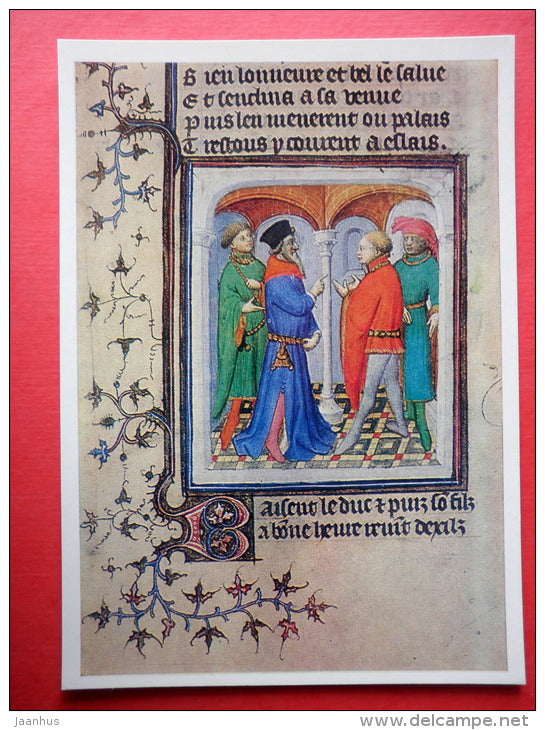 B ien lonnieure et bel le salue
E t senclina a sa venue
P uis len menerent ou palais
T restous y courent a eslais.
B aisent le duc & puiz so filz
a bone heure revit dexilz
jaanhus
www.delcampe.net